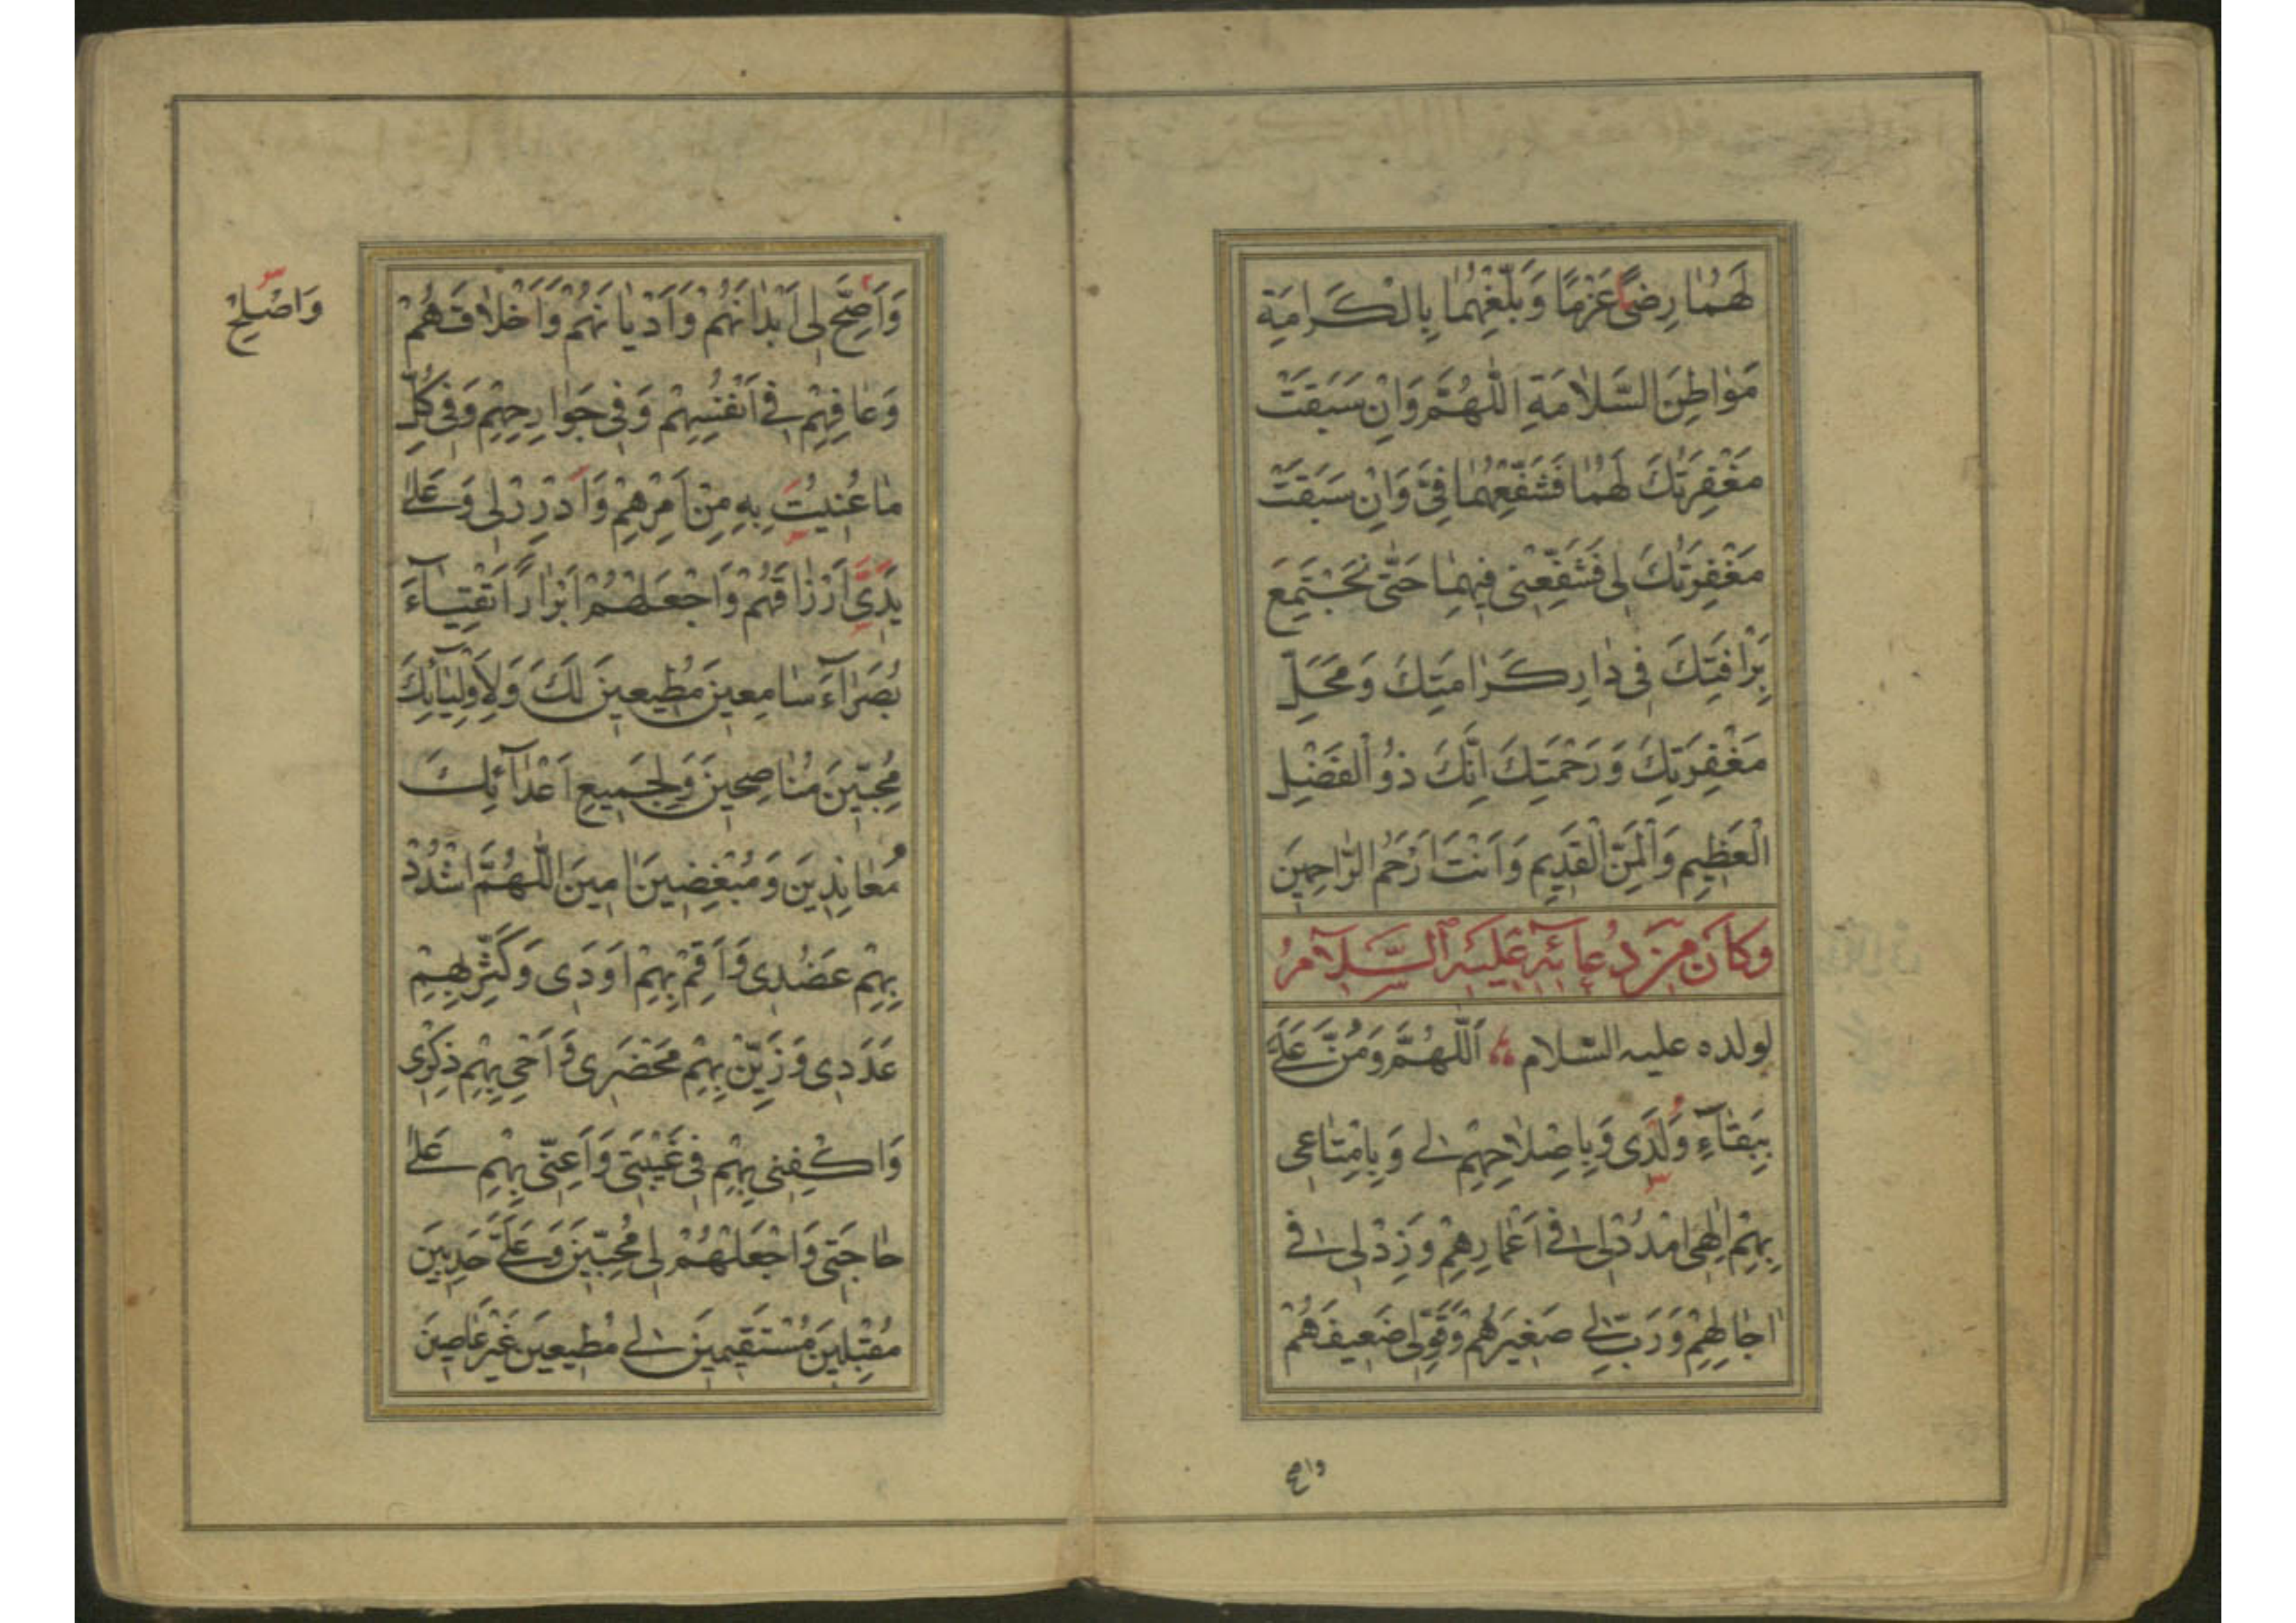 لَهُمٰا رِضًى عَزْمًا وَبَلِّغْهُمٰا بِالْكَرامَةِ
مَوٰاطِنَ السَّلاٰمَةِ اَللّٰهُمَّ وَاِنْ سَبَقَتْ
مَغْفِرَتُكَ لَهُمٰا فَشَفِّعْهُمٰا فِيَّ وَاِنْ سَبَقَتْ
مَغْفِرَتُكَ لى فَشَفِّعْنى فيهِمٰا حَتّٰى نَجْتَمِعَ
بِرَاْفَتِكَ فى دٰارِ كَرٰامَتِكَ وَمَحَلِّ
مَغْفِرَتِكَ وَرَحْمَتِكَ اِنَّكَ ذُوالْفَضْلِ
الْعَظيمِ وَالْمَنِّ الْقَديمِ وَاَنْتَ اَرْحَمُ الرّٰاحِمينَ
وَكانَ مِنْ دُعآئِهِ عَلَيْهِ السَّلامُ
لولده عليه السّلام اَللّٰهُمَّ وَمُنَّ عَلَيَّ
بِبَقٰآءِ وُلْدى وَبِاِصْلاٰحِهِمْ لى وَبِاِمْتٰاعى
بِهِمْ اِلٰهى امْدُدْ لى فى اَعْمٰارِهِمْ وَزِدْ لى فى
اٰجٰالِهِمْ وَرَبِّ لى صَغيرَهُمْ وَقَوِّ لى ضَعيفَهُمْ
واصح
وَاَصِحَّ لى اَبْدٰانَهُمْ وَاَدْيٰانَهُمْ وَاَخْلاٰقَهُمْ
وَاَصْلِحْ
وَعٰافِهِمْ فى اَنْفُسِهِمْ وَفى جَوٰارِحِهِمْ وَفى كُلِّ
مٰا عُنيتُ بِهِ مِنْ اَمْرِهِمْ وَاَدْرِرْ لى وَعَلىٰ
يَدَىَّ اَرْزٰاقَهُمْ وَاجْعَلْهُمْ اَبْرٰارًا اَتْقِيٰآءَ
بُصَرٰآءَ سٰامِعينَ مُطيعينَ لَكَ وَلِاَوْلِيٰآئِكَ
مُحِبّينَ مُنٰاصِحينَ وَلِجَميعِ اَعْدٰآئِكَ
مُعٰانِدينَ وَمُبْغِضينَ اٰمينَ اَللّٰهُمَّ اشْدُدْ
بِهِمْ عَضُدى وَاَقِمْ بِهِمْ اَوَدى وَكَثِّرْ بِهِمْ
عَدَدى وَزَيِّنْ بِهِمْ مَحْضَرى وَاَحْىِ بِهِمْ ذِكْرى
وَاكْفِنى بِهِمْ فى غَيْبَتى وَاَعِنّى بِهِمْ عَلىٰ
حٰاجَتى وَاجْعَلْهُمْ لى مُحِبّينَ وَعَلَىَّ حَدِبينَ
مُقْبِلينَ مُسْتَقيمينَ لى مُطيعينَ غَيْرَ عٰاصينَ